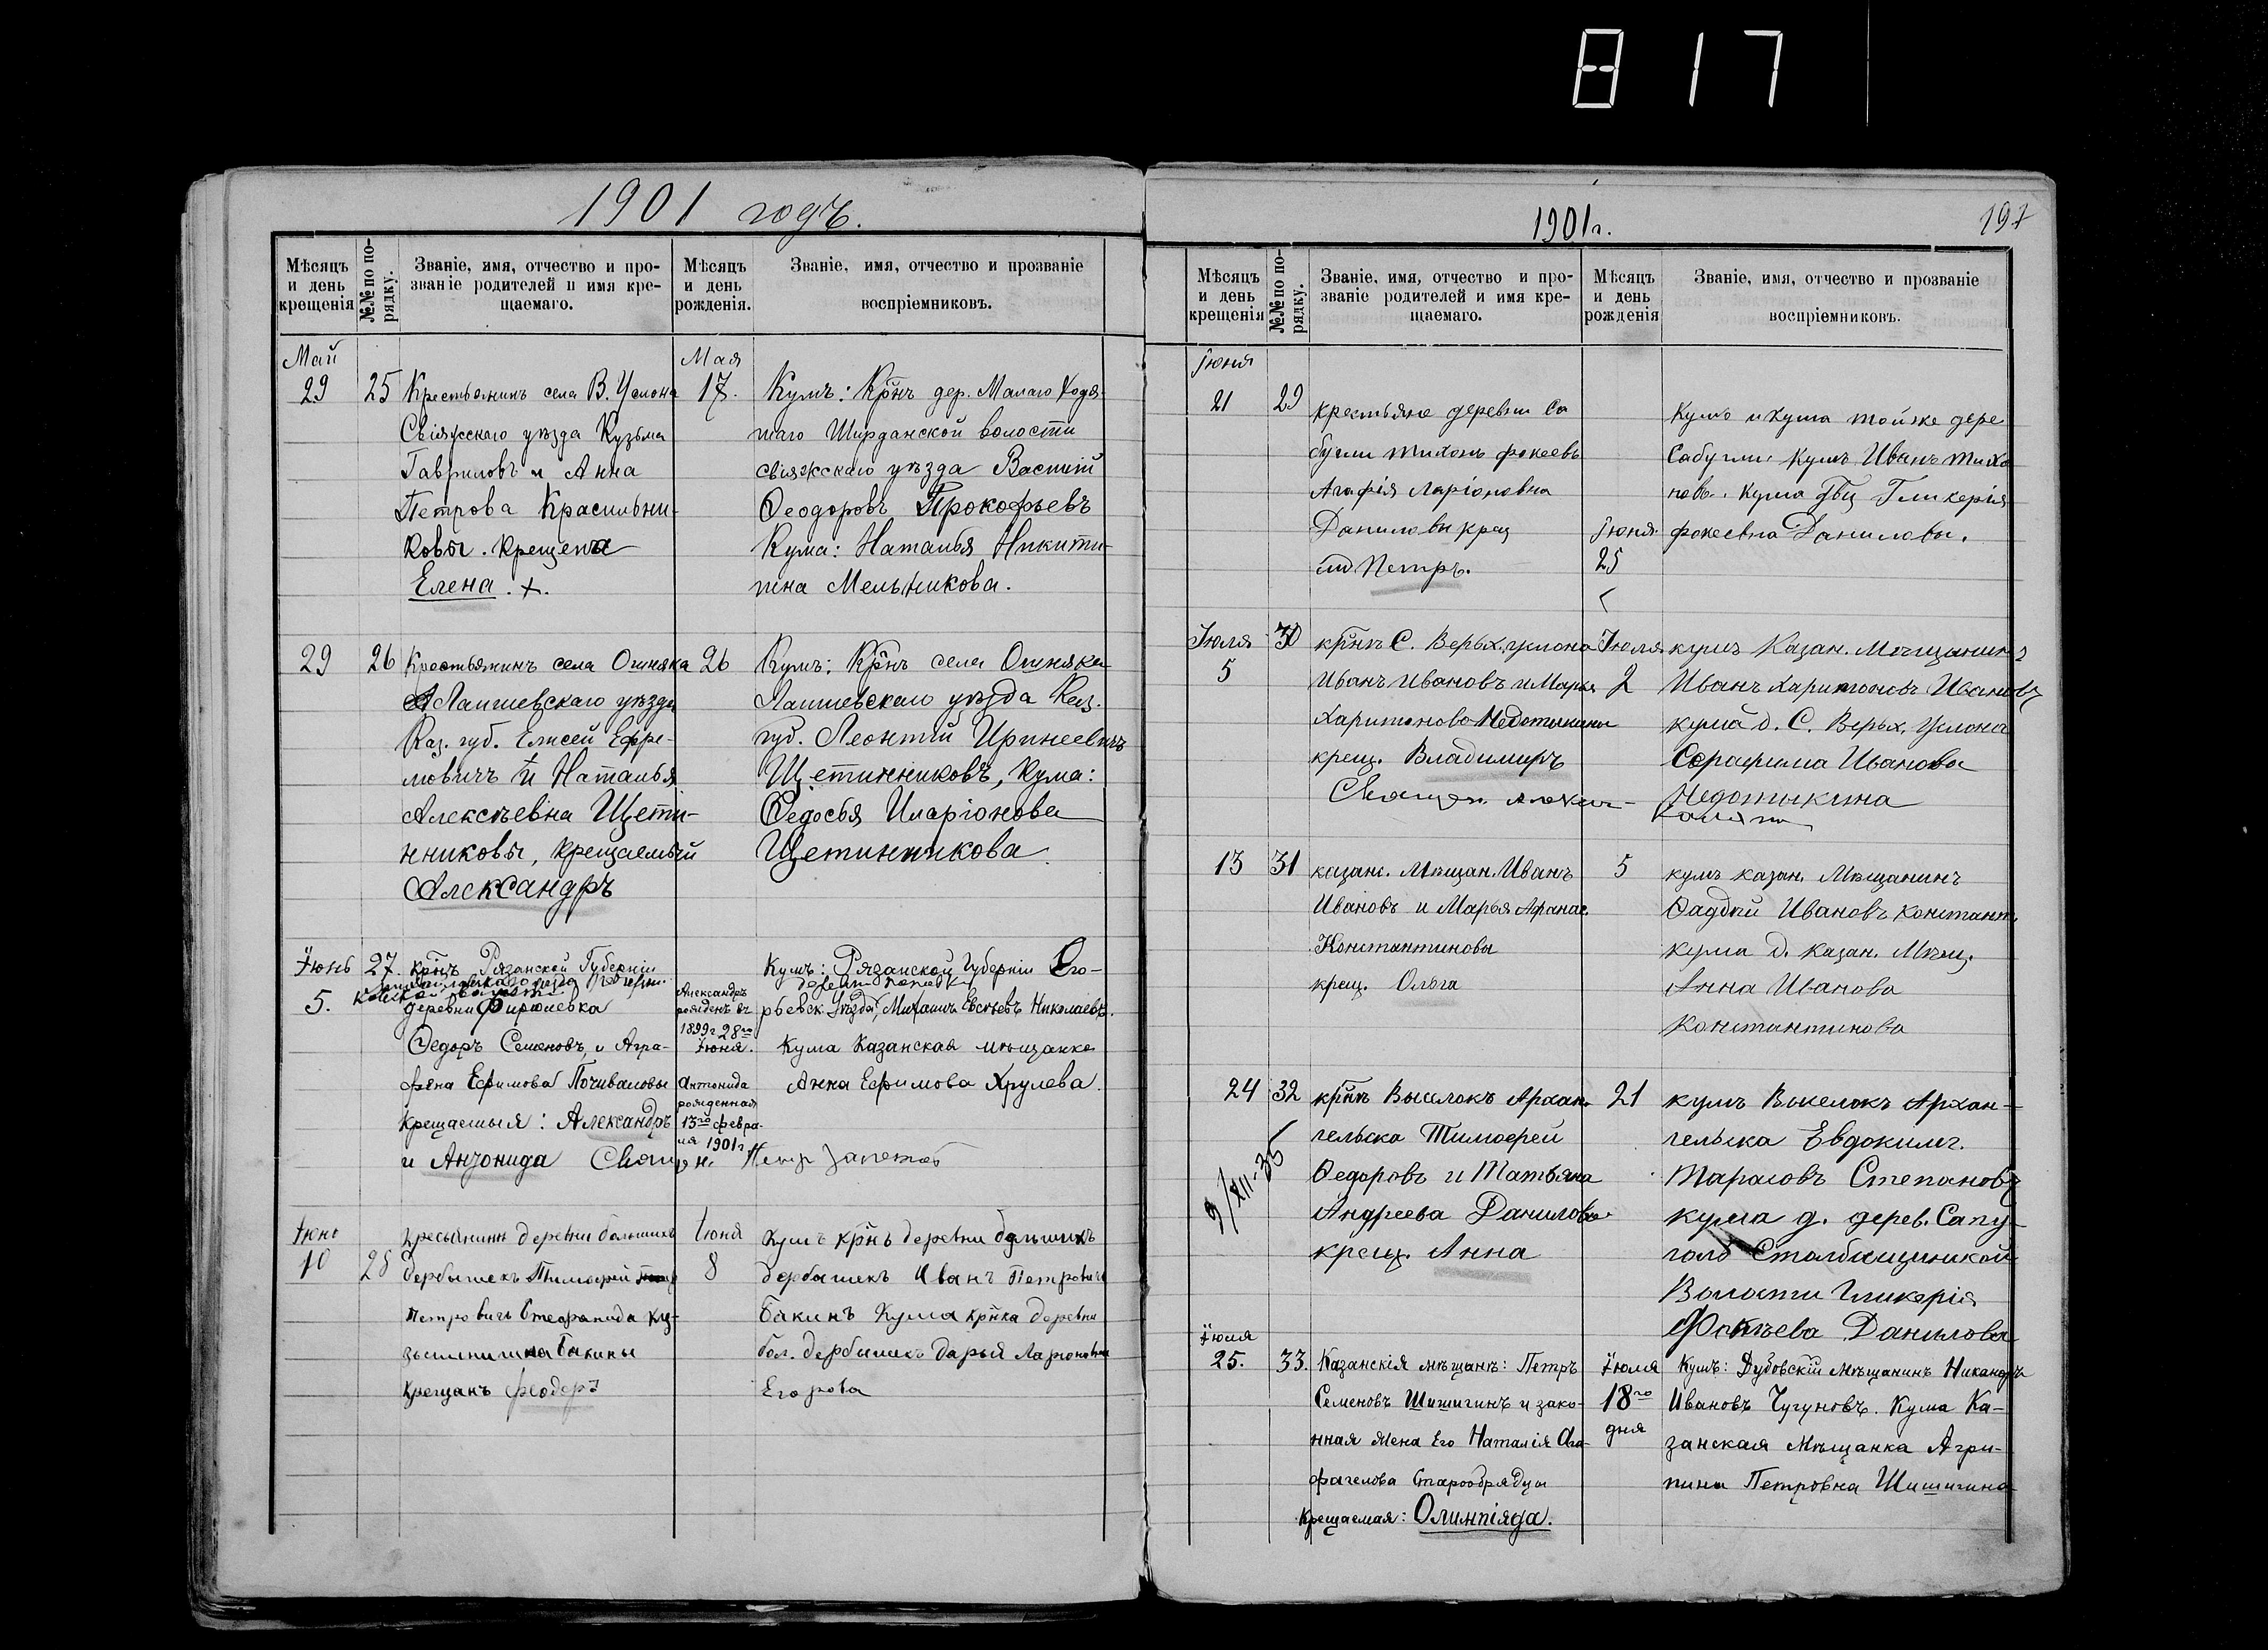 817
1901 годъ.
Мѣсяцъ и день крещенія
№№ по порядку.
Званіе, имя, отчество и прозваніе родителей и имя крещаемаго.
Мѣсяцъ и день рожденія.
Званіе, имя, отчество и прозваніе воспріемниковъ.
Май
29
25
Крестьянинъ села В. Услона
Свіяжскаго уѣзда Кузьма
Гавриловъ и Анна
Петрова Красильни-
ковы. Крещена
Елена. +.
Мая
17.
Кумъ: Кр̃нъ дер. Малаго Ходя-
шаго Ширданской волости
свіяжскаго уѣзда Василій
Ѳеодоровъ Прокофьевъ
Кума: Наталья Никити-
на Мельникова.
29
26
Крестьянинъ села Ошняка
Лаишевскаго уѣзда
Каз. губ. Елисей Ефре-
мовичъ и Наталья
Алексѣевна Щети-
нниковы, крещаемый
Александръ
26
Кумъ: Кр̃нъ села Ошняка
Лаишевскаго уѣзда Каз.
губ. Леонтій Иринеевичъ
Щетинниковъ, Кума:
Ѳедосья Иларіонова
Щетинникова.
Іюнь
5.
27.
кр̃нъ Рязанской Губерніи
деревни Фирюлевка
Ѳедоръ Семеновъ, и Агра-
фена Ефимова Почиваловы
крещаемыя: Александръ
и Антонида
Александръ
рожденъ въ
1899 г 28го
Іюня.
Антонида
рожденная
13го февра-
ля 1901 г.
Кумъ: Рязанской Губерніи Его-
рьевск. Уѣзда, Михаилъ Евсѣевъ Николаевъ.
Кума Казанская мѣщанка
Анна Ефимова Хрулева.
Іюнь
10
28
кресьянинъ деревни большихъ
дербышекъ Тимофей
Петровичъ Стефанида Ку-
зьминишна Бакины
крещанъ феодоръ
Іюня
8
Кумъ кр̃нъ деревни большихъ
дербашекъ Иванъ Петровичъ
Бакинъ Кума кр̃нка деревни
бол. дербышекъ Дарья Ларіоновна
Егорова
1901 г.
197
Мѣсяцъ и день крещенія
№№ по порядку.
Званіе, имя, отчество и прозваніе родителей и имя крещаемаго.
Мѣсяцъ и день рожденія
Званіе, имя, отчество и прозваніе воспріемниковъ.
Іюня
21
29
крестьяне деревни Са
бугли тихонъ фокеевъ
Агафія ларіоновна
Даниловы крещ
Петръ.
Іюня
25
Кумъ и кума тойже дере
Сабугли Кумъ Иванъ тихо
новъ. Кума Гликерія
фокеевна Даниловы.
Іюля
5
30
кр̃нъ С. Верьх. услона
Иванъ Ивановъ и Марья
Харитонова Недотыкины
крещ. Владимиръ
Іюля
2
кумъ Казан. Мѣщанинъ
Иванъ Харитоновъ Ивановъ
кума д. С. Верьх. Услона
Серафима Иванова
Недотыкина
13
31
казанс. Мѣщан. Иванъ
Ивановъ и Марья Афанас.
Константиновы
крещ. Ольга
5
кумъ казан. Мѣщанинъ
Ѳаддей Ивановъ Констант.
кума д. казан. Мѣщ.
Анна Иванова
Константинова
24
32
кр̃нъ Выселокъ Архан-
гельска Тимофей
Ѳедоровъ и Татьяна
Андреева Даниловы
крещ. Анна
9/XII-35
21
кумъ Выселокъ Архан-
гельска Евдокимъ
Тарасовъ Степановъ
кума д. дерев. Сапу-
голь Столбищинской
Волости Гликерія
Фокѣева Данилова
Іюля
25.
33.
Казанскія мѣщанъ: Петръ
Семеновъ Шишигинъ и зако-
нная жена Его Наталія Ага-
фагелова Старообрядцы
Крещаемая: Олимпіяда.
Іюля
18го
дня
Кумъ: Дубовскій мѣщанинъ Никандръ
Ивановъ Чугуновъ. Кума Ка-
занская Мѣщанка Агри-
пина Петровна Шишигина